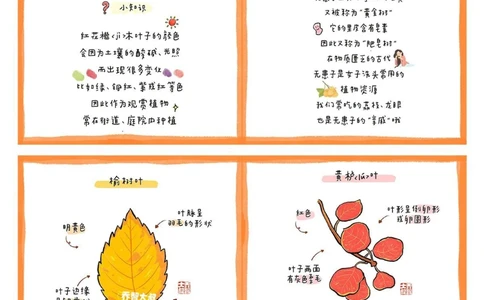 小知识
红花檵(jì)木叶子的颜色
会因为土壤的酸碱、光照
而出现很多变化
比如绿、铜红、紫或红等色
因此作为观赏植物
常在街道、庭院内种植
又被称为“黄金树”
它的果皮含有皂素
因此又称为“肥皂树”
在物质匮乏的古代
无患子是女子洗头常用的
植物资源
我们常吃的荔枝、龙眼
也是无患子的“亲戚”哦
榆树叶
明黄色
叶脉呈
羽毛的形状
叶子边缘
黄栌(lú)叶
红色
叶形呈倒卵形
或卵圆形
叶子两面
有灰色柔毛